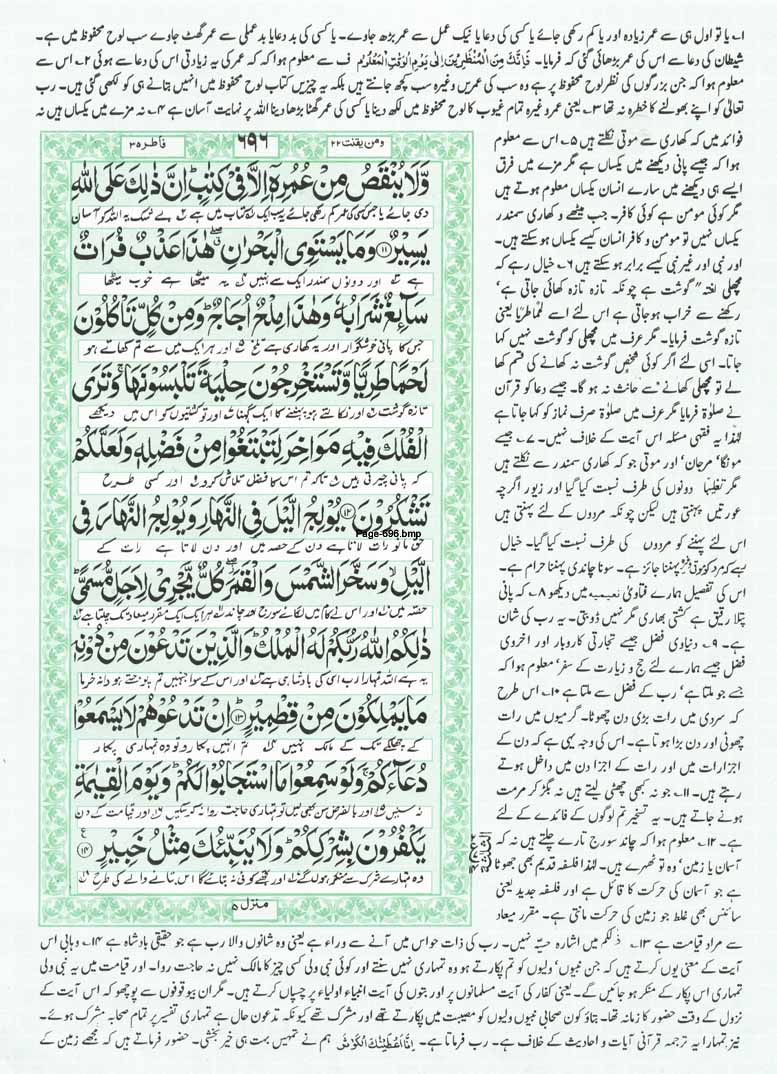 ۱؎ یا تو اول ہی سے عمر زیادہ اور یا کم رکھی جائے یا کسی کی دعا یا نیک عمل سے عمر بڑھ جاوے۔ یا کسی کی بد دعا یا بد عملی سے عمر گھٹ جاوے سب لوح محفوظ میں ہے۔
شیطان کی دعا سے اس کی عمر بڑھائی گئی کہ فرمایا۔ فَاِنَّكَ مِنَ الْمُنْظَرِیْنَ اِلٰی یَوْمِ الْوَقْتِ الْمَعْلُوْمِ ف سے معلوم ہوا کہ عمر کی یہ زیادتی اس کی دعا سے ہوئی ۲؎ اس سے
معلوم ہوا کہ جن بزرگوں کی نظر لوح محفوظ پر ہے وہ سب کی عمریں وغیرہ سب کچھ جانتے ہیں بلکہ یہ چیزیں کتاب لوح محفوظ میں انہیں بتانے ہی کو لکھی گئی ہیں۔ رب
تعالٰی کو اپنے بھولنے کا خطرہ نہ تھا ۳؎ یعنی عمر وغیرہ تمام غیوب کا لوح محفوظ میں لکھ دینا یا کسی کی عمر گھٹا بڑھا دینا اللہ پر نہایت آسان ہے ۴؎ نہ مزے میں یکساں ہیں نہ
فوائد میں کہ کھاری سے موتی نکلتے ہیں ۵؎ اس سے معلوم
ہوا کہ جیسے پانی دیکھنے میں یکساں ہے مگر مزے میں فرق
ایسے ہی دیکھنے میں سارے انسان یکساں معلوم ہوتے ہیں
مگر کوئی مومن ہے کوئی کافر۔ جب میٹھے و کھاری سمندر
یکساں نہیں تو مومن و کافر انسان کیسے یکساں ہو سکتے ہیں۔
اور نبی اور غیر نبی کیسے برابر ہو سکتے ہیں ۶؎ خیال رہے کہ
مچھلی لغتہ گوشت ہے چونکہ تازہ تازہ کھائی جاتی ہے'
رکھنے سے خراب ہو جاتی ہے اس لئے اسے لَحْمًا طَرِیًّا یعنی
تازہ گوشت فرمایا۔ مگر عرف میں مچھلی کو گوشت نہیں کہا
جاتا۔ اسی لئے اگر کوئی شخص گوشت نہ کھانے کی قسم کھا
لے تو مچھلی کھانے سے حانث نہ ہو گا۔ جیسے دعا کو قرآن
نے صلوٰۃ فرمایا مگر عرف میں صلوٰۃ صرف نماز کو کہا جاتا ہے
لہٰذا یہ فقہی مسئلہ اس آیت کے خلاف نہیں۔ ۷؎ جیسے
مونگا' مرجان' اور موتی جو کہ کھاری سمندر سے نکلتے ہیں
مگر تغلیبًا دونوں کی طرف نسبت کیا گیا اور زیور اگرچہ
عورتیں پہنتی ہیں لیکن چونکہ مردوں کے لئے پہنتی ہیں
اس لئے پہننے کو مردوں کی طرف نسبت کیا گیا۔ خیال
رہے کہ مرد کو موتی پہننا جائز ہے۔ سونا چاندی پہننا حرام ہے۔
اس کی تفصیل ہمارے فتاویٰ نعیمیہ میں دیکھو ۸؎ کہ پانی
پتلا رقیق ہے کشتی بھاری مگر نہیں ڈوبتی۔ یہ رب کی شان
ہے۔ ۹؎ دنیاوی فضل جیسے تجارتی کاروبار اور اخروی
فضل جیسے ہمارے لئے حج و زیارت کے سفر' معلوم ہوا کہ
جسے جو ملتا ہے' رب کے فضل سے ملتا ہے ۱۰؎ اس طرح
کہ سردی میں رات بڑی دن چھوٹا۔ گرمیوں میں رات
چھوٹی اور دن بڑا ہوتا ہے۔ اس کی وجہ یہی ہے کہ دن کے
اجزا رات میں اور رات کے اجزا دن میں داخل ہوتے
رہتے ہیں۔ ۱۱؎ جو نہ کبھی چھٹی لیتے ہیں نہ بگڑ کر مرمت
ہونے جاتے ہیں۔ یہ تسخیر تم لوگوں کے فائدے کے لئے
ہے۔ ۱۲؎ معلوم ہوا کہ چاند سورج تارے چلتے ہیں نہ کہ
آسمان یا زمین' وہ تو ٹھہرے ہیں۔ لہٰذا فلسفہ قدیم بھی جھوٹا
ہے جو آسمان کی حرکت کا قائل ہے اور فلسفہ جدید یعنی
سائنس بھی غلط جو زمین کی حرکت مانتی ہے۔ مقرر میعاد
ومن یقنت ۲۲
۶۹۶
فاطر ۳۵
وَّلَا یُنْقَصُ مِنْ عُمُرِهٖۤ اِلَّا فِیْ كِتٰبٍؕ اِنَّ ذٰلِكَ عَلَی اللّٰهِ
دی جائے یا جس کسی کی عمر کم رکھی جائے یہ سب ایک کتاب میں ہے بے شک یہ اللہ کو آسان
یَسِیْرٌ ﴿۱۱﴾ وَمَا یَسْتَوِی الْبَحْرٰنِ ۖ هٰذَا عَذْبٌ فُرَاتٌ
ہے اور دونوں سمندر ایک سے نہیں یہ میٹھا ہے خوب میٹھا
سَآىِٕغٌ شَرَابُهٗ وَهٰذَا مِلْحٌ اُجَاجٌؕ وَمِنْ كُلٍّ تَاْكُلُوْنَ
جس کا پانی خوشگوار اور یہ کھاری ہے تلخ اور ہر ایک میں سے تم کھاتے ہو
لَحْمًا طَرِیًّا وَّتَسْتَخْرِجُوْنَ حِلْیَةً تَلْبَسُوْنَهَاۚ وَتَرَی
تازہ گوشت اور نکالتے ہو پہننے کا ایک گہنا اور تو کشتیوں کو اس میں دیکھے
الْفُلْكَ فِیْهِ مَوَاخِرَ لِتَبْتَغُوْا مِنْ فَضْلِهٖ وَلَعَلَّكُمْ
کہ پانی چیرتی ہیں تاکہ تم اس کا فضل تلاش کرو اور کسی طرح
تَشْكُرُوْنَ ﴿۱۲﴾ یُوْلِجُ الَّیْلَ فِی النَّهَارِ وَیُوْلِجُ النَّهَارَ فِی
Page-696.bmp
حق مانو رات لاتا ہے دن کے حصہ میں اور دن لاتا ہے رات کے
الَّیْلِۙ وَسَخَّرَ الشَّمْسَ وَالْقَمَرَ ۖؗ كُلٌّ یَّجْرِیْ لِاَجَلٍ مُّسَمًّیؕ
حصہ میں اور اس نے کام میں لگائے سورج اور چاند ہر ایک ایک مقرر میعاد تک چلتا ہے
ذٰلِكُمُ اللّٰهُ رَبُّكُمْ لَهُ الْمُلْكُؕ وَالَّذِیْنَ تَدْعُوْنَ مِنْ دُوْنِهٖ
یہ ہے اللہ تمہارا رب اسی کی بادشاہی ہے اور اس کے سوا جنہیں تم پوجتے ہو دانہ خرما
مَا یَمْلِكُوْنَ مِنْ قِطْمِیْرٍؕ ﴿۱۳﴾ اِنْ تَدْعُوْهُمْ لَا یَسْمَعُوْا
کے چھلکے تک کے مالک نہیں تم انہیں پکارو تو وہ تمہاری پکار
دُعَآءَكُمْۚ وَلَوْ سَمِعُوْا مَا اسْتَجَابُوْا لَكُمْؕ وَیَوْمَ الْقِیٰمَةِ
نہ سنیں اور بالفرض سن بھی لیں تو تمہاری حاجت روا نہ کر سکیں اور قیامت کے دن
یَكْفُرُوْنَ بِشِرْكِكُمْؕ وَلَا یُنَبِّئُكَ مِثْلُ خَبِیْرٍ ﴿۱۴﴾
وہ تمہارے شرک سے منکر ہوں گے اور تجھے کوئی نہ بتائے گا اس بتانے والے کی طرح
منزل ۵
سے مراد قیامت ہے ۱۳؎ ذٰلکم میں اشارہ حسیّہ نہیں۔ رب کی ذات حواس میں آنے سے وراء ہے یعنی وہ شانوں والا رب ہے جو حقیقی بادشاہ ہے ۱۴؎ وہابی اس
آیت کے معنی یوں کرتے ہیں کہ جن نبیوں' ولیوں کو تم پکارتے ہو وہ تمہاری نہیں سنتے اور کوئی نبی ولی کسی چیز کا مالک نہیں نہ حاجت روا۔ اور قیامت میں یہ نبی ولی
تمہاری اس پکار کے منکر ہو جائیں گے۔ یعنی کفار کی آیت مسلمانوں پر اور بتوں کی آیت انبیاء اولیاء پر چسپاں کرتے ہیں۔ مگر ان بیوقوفوں سے پوچھو کہ اس آیت کے
نزول کے وقت حضور کا زمانہ تھا۔ بتاؤ کون صحابی نبیوں ولیوں کو مصیبت میں پکارتے تھے اور مشرک تھے کیونکہ تدعون حال ہے تمہاری تفسیر پر تمام صحابہ مشرک ہوئے۔
نیز تمہارا یہ ترجمہ قرآنی آیات و احادیث کے خلاف ہے۔ رب فرماتا ہے۔ اِنَّا اَعْطَیْنٰكَ الْكَوْثَرَ ہم نے تمہیں بہت ہی خیر بخشی۔ حضور فرماتے ہیں کہ مجھے زمین کے